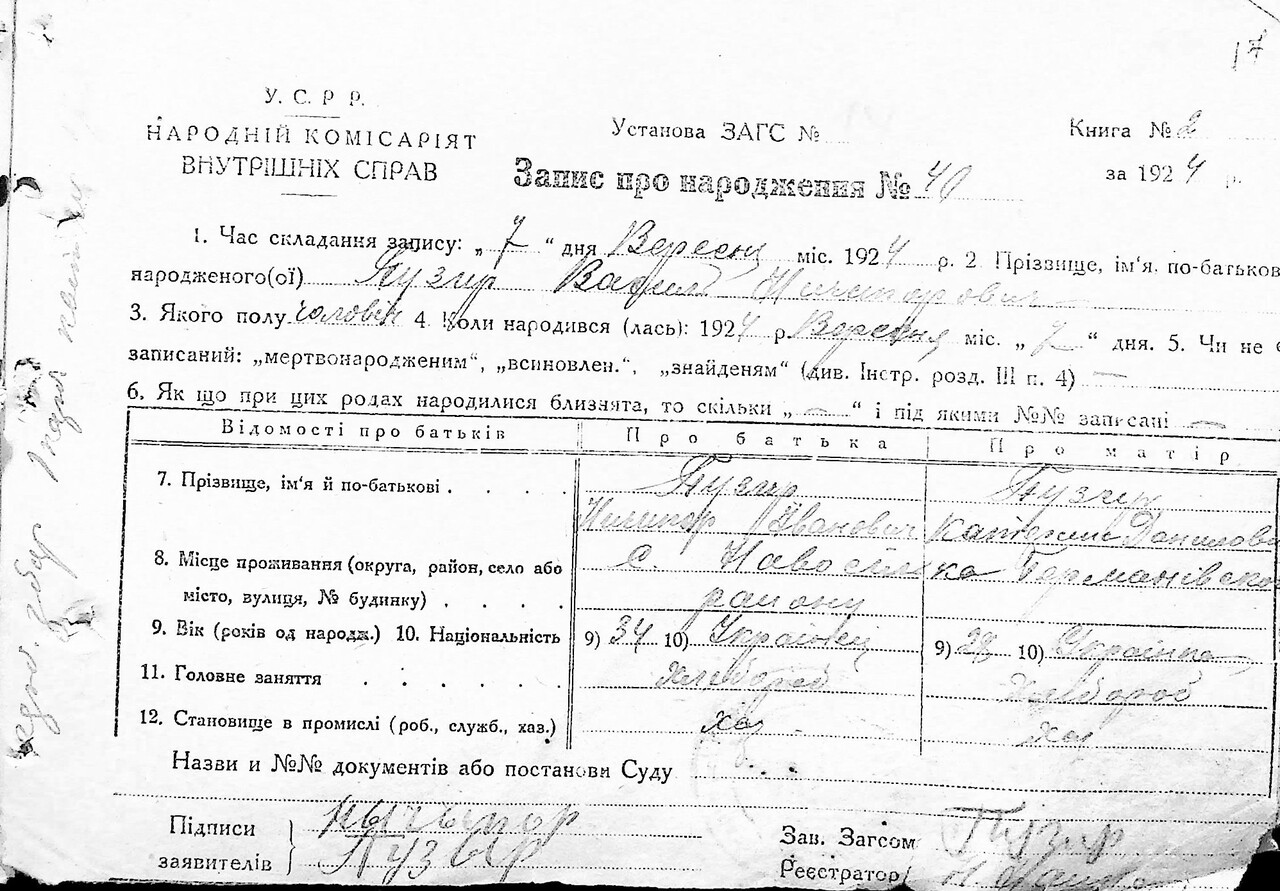 17
У. С. Р Р.
НАРОДНІЙ КОМІСАРІЯТ
ВНУТРІШНІХ СПРАВ
Установа ЗАГС №
Книга № 2
за 1924 р.
Запис про народження № 40
1. Час складання запису: „ 7 “ дня Вересня міс. 1924 р. 2 Прізвище, ім'я. по-батькові
народженого(ої) Пузир Василь Ничипорович
3. Якого полу чоловік 4. Коли народився (лась): 1924 р. Вересня міс. „ 7 “ дня. 5. Чи не є
записаний: „мертвонародженим“, „всиновлен.“, „знайденям“ (див. Інстр. розд. III п. 4)
6. Як що при цих родах народилися близнята, то скільки „ — “ і під якими №№ записані —
Відомості про батьків Про батька Про матір
7. Прізвище, ім'я й по-батькові . . . . Пузир Пузир
Ничипор Іванович Катерина Данилова
8. Місце проживання (округа, район, село або с. Новосілка Германівского
місто, вулиця, № будинку) . . . . району
9. Вік (років од народж.) 10. Національність 9) 34 10) Українец 9) 28 10) Українка
11. Головне заняття . . . . . хлебороб хлебороб
12. Становище в промислі (роб., служб., хаз.) хаз хаз
Назви и №№ документів або постанови Суду
Підписи заявителів } Нычыпор
Пузир
Зав. Загсом Пузир
Реєстратор